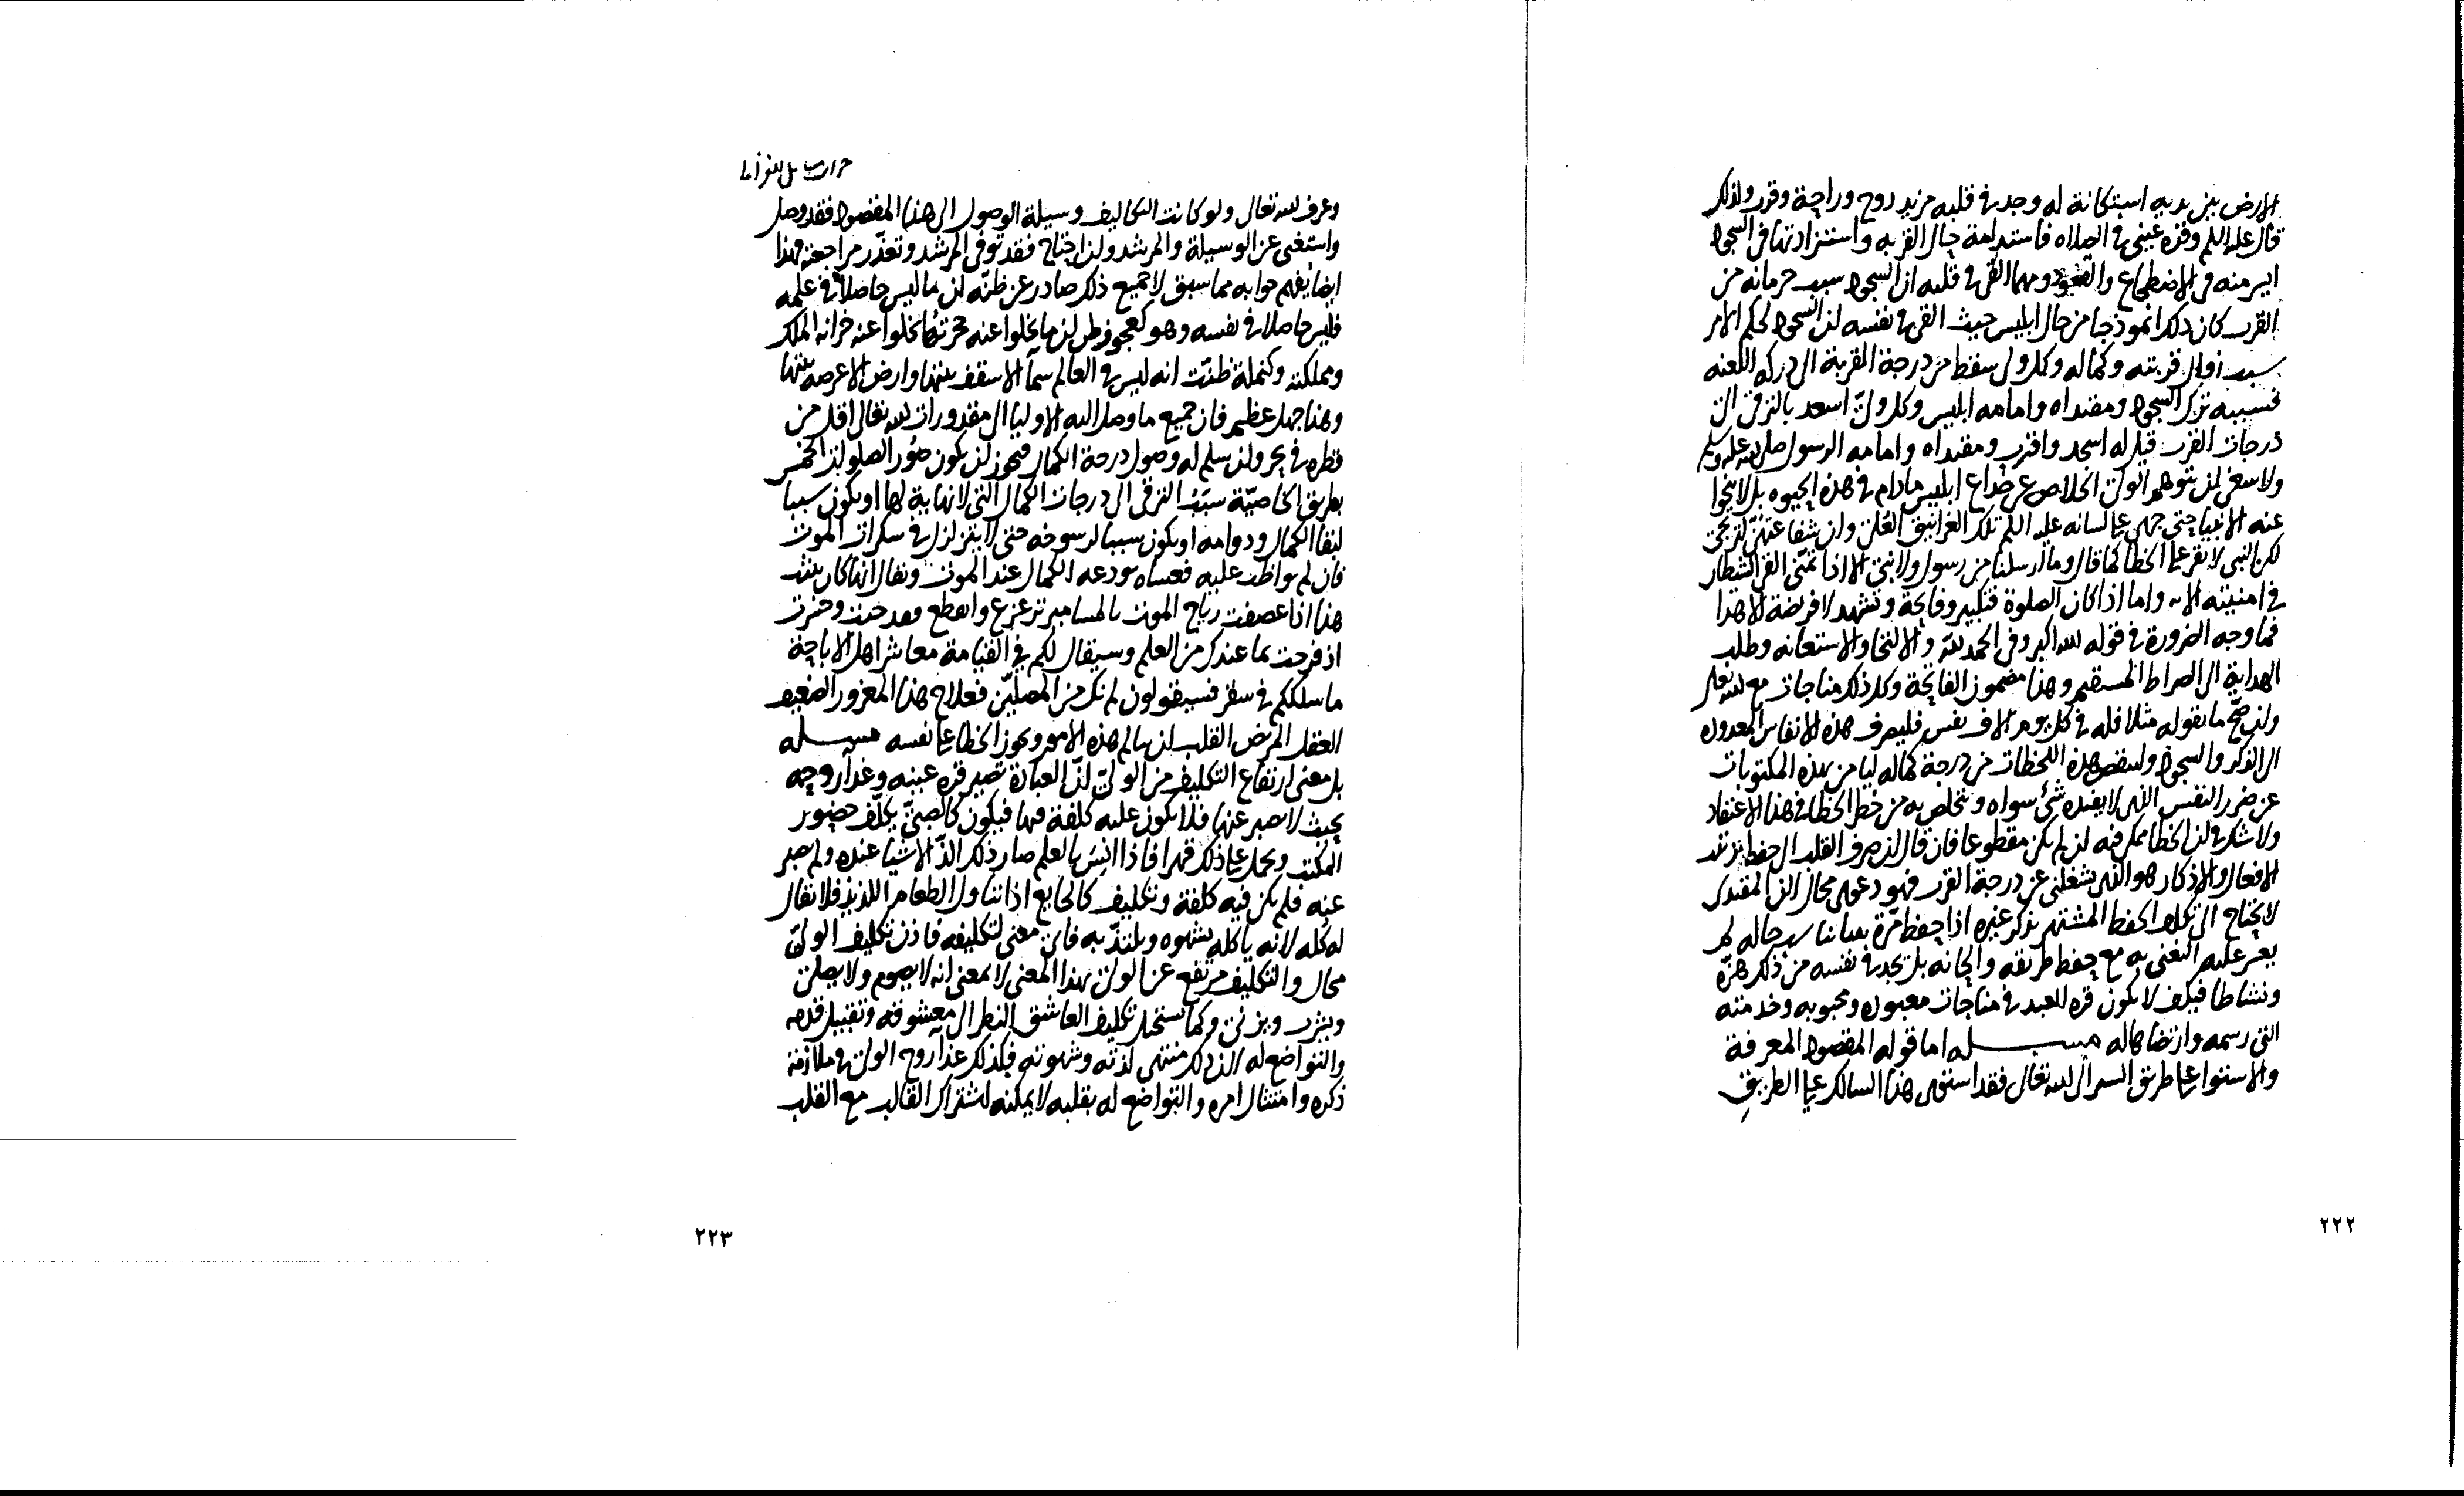 الارض بين يديه استكانة له وجد في قلبه مزيد روح وراحة وقرب ولذلك
قال عليه السلم وقرة عيني في الصلاه فاستدامة حال القربه واستزادتها في السجود
ايسر منه في الاضطجاع والقعود ومهما القى في قلبه ان السجود سبب حرمانه من
القرب كان ذلك انموذجا من حال ابليس حيث القى في نفسه ان السجود لحكم الامر
سبب زوال قربته وكماله وكل ولى سقط من درجة القربة الى دركه اللعنه
فسببه ترك السجود ومقتداه وامامه ابليس وكل ولى اسعد بالترقى الى
درجات القرب قيل له اسجد واقترب ومقتداه وامامه الرسول صلى الله عليه وسلم
ولا ينبغى ان يتوهم الولى الخلاص عن خداع ابليس مادام في هذه الحيوه بل لا ينجوا
عنه الانبيا حتى جرى على لسانه عليه السلم تلك الغرانيق العلى وان شفاعتهن لترتجى
لكن النبى لا يقر على الخطا كما قال وما ارسلنا من رسول ولا نبى الا اذا تمنى القى الشيطان
في امنيته الايه واما اذا كان الصلوة فتكبير وفاتحة وتشهد لا فريضة الا هذا
فما وجه الضرورة في قوله الله اكبر وفى الحمد لله والالتجا والاستعانه وطلب
الهداية الى الصراط المستقيم وهذا مضمون الفاتحة وكل ذلك مناجات مع الله تعالى
وان صح ما يقوله مثلا فله في كل يوم الاف نفس فليصرف هذه الانفاس المعدوده
الى الذكر والسجود ولينقص هذه اللحظات من درجة كماله ليامن بهذه المكتوبات
عن ضرر النفس الذى لا يفيده شئ سواه ويتخلص به من خطر الخطا في هذا الاعتقاد
ولا شك في ان الخطا ممكن فيه ان لم يكن مقطوعا فان قال ان صرف القلب الى حفظ ترتيب
الافعال والاذكار هو الذى يشغلنى عن درجة القرب فهو دعوى محال لان المقتدى
لا يحتاج الى تكلف الحفظ المشتهر بذكر غيره اذا حفظ مرة بيتا يناسب حاله لم
يعسر عليه التغنى به مع حفظ طريقه والحانه بل يجد في نفسه من ذلك هزة
ونشاطا فكيف لا يكون قره للعبد في مناجات معبوده ومحبوبه وخدمته
التى رسمه وارتضاها له مسـله اما قوله المقصود المعرفة
والاستوا على طريق السير الى الله تعالى فقد استوى هذا السالك على الطريق
٢٢٢
وعرف الله تعالى ولو كانت التكاليف وسيلة الوصول الى هذا المقصود فقد وصل
واستغنى عن الوسيلة والمرشد وان احتاج فقد توفى المرشد وتعذر مراجعته فهذا
ايضا يفهم جوابه مما سبق لا جميع ذلك صادر عن ظنه ان ما ليس حاصلا في علمه
فليس حاصلا في نفسه وهو كعجوز يظن ان ما يخلوا عنه حجرتها يخلوا عنه خزانه الملك
ومملكته وكنملة ظنت انه ليس في العالم سما الا سقف بيتها وارض الا عرصه بيتها
وهذا جهل عظيم فان جميع ما وصل اليه الاوليا الى مقدورات الله تعالى اقل من
قطره في بحر وان سلم له وصول درجة الكمال فيجوز ان يكون صور الصلوات الخمس
بطريق الخاصية سبب الترقى الى درجات الكمال التى لا نهاية لها او يكون سببا
لبقا الكمال ودوامه او يكون سببا لرسوخه حتى لا يتزلزل في سكرات الموت
فان لم يواظب عليه فعساه يودعه الكمال عند الموت ويقال انها كان يثبت
هذا اذا عصفت رياح الموت بالمسامير تزعزع وانقطع وقد خبت وخسرت
اذ فرحت بما عندك من العلم وسيقال لكم في القيامة معاشر اهل الاباحة
ما سلككم في سقر فسيقولون لم نك من المصلين فعلاج هذا المغرور الضعيف
العقل المريض القلب ان يسالم هذه الامور ويجوز الخطا على نفسه مسـله
بل معنى ارتفاع التكليف من الولى ان العبادة تصير قره عينه وغذا روحه
بحيث لا يصبر عنها فلا يكون عليه كلفة فيها فيكون كالصبى يكلف حضور
المكتب ويحمل على ذلك قهرا فاذا انس بالعلم صار ذلك الذ الاشيا عنده ولم يصبر
عنه فلم يكن فيه كلفة وتكليف كالجايع اذا تناول الطعام اللذيذ فلا يقال
له كله لانه ياكله بشهوه ويلتذ به فاى معنى لتكليفه فاذن تكليف الولى
محال والتكليف مرتفع عن الولى بهذا المعنى لا بمعنى انه لا يصوم ولا يصلى
ويشرب ويزنى وكما يستحيل تكليف العاشق النظر الى معشوقه وتقبيل قدمه
والتواضع له لان ذلك منتهى لذته وشهوته فكذلك غذا روح الولى في ملازمة
ذكره وامتثال امره والتواضع له بقلبه لا يمكنه اشتراك القالب مع القلب
٢٢٣